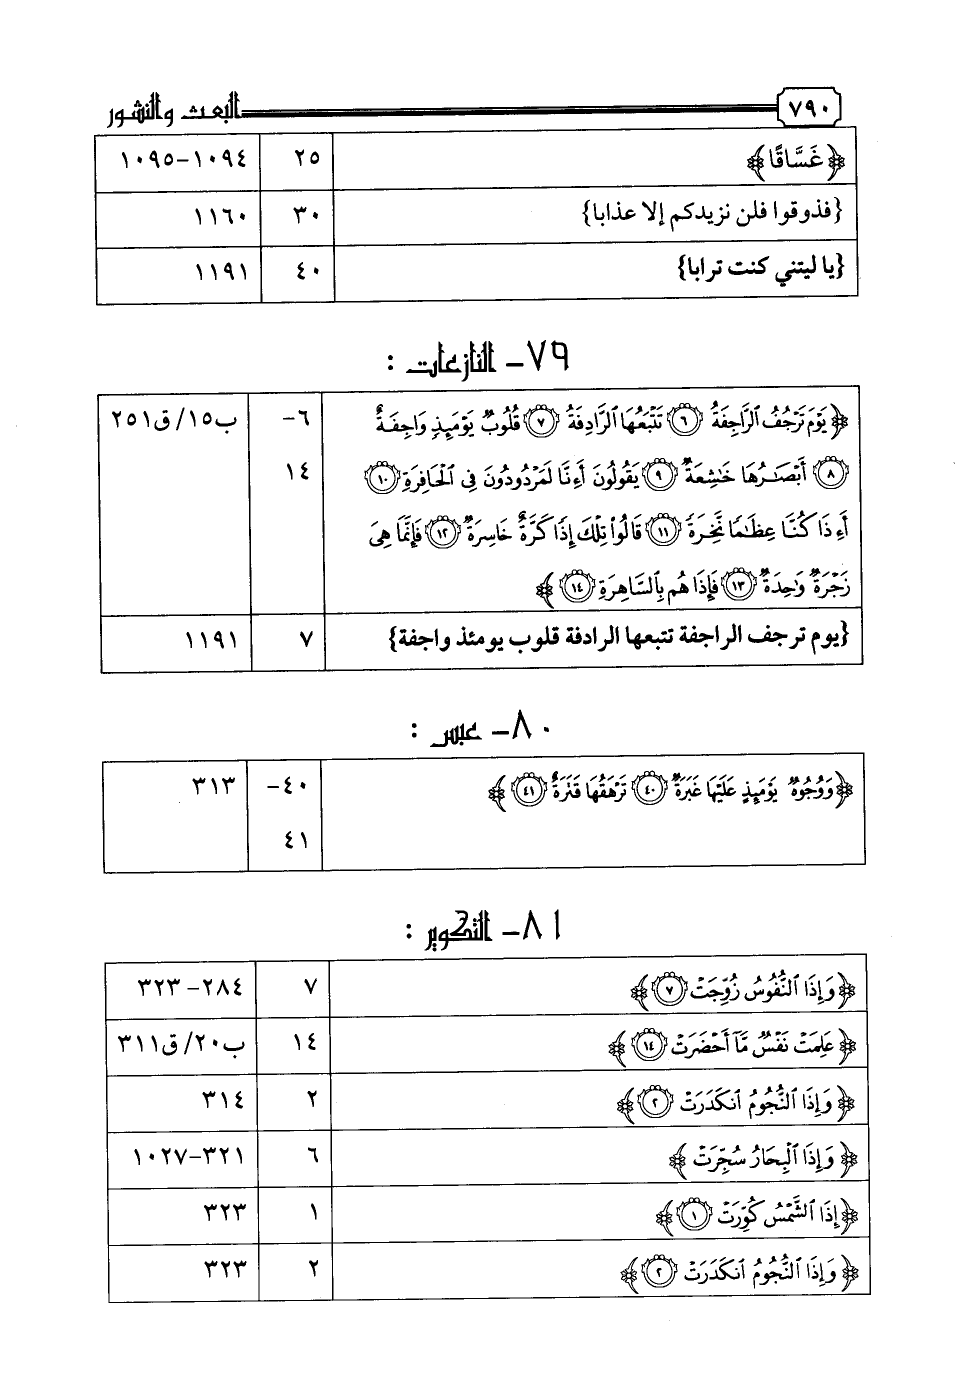 ٧٩٠ البعث والنشور
﴿غَسَّاقًا﴾ ٢٥ ١٠٩٤-١٠٩٥
{فذوقوا فلن نزيدكم إلا عذابا} ٣٠ ١١٦٠
{يا ليتني كنت ترابا} ٤٠ ١١٩١
٧٩- النازعات :
﴿يَوْمَ تَرْجُفُ ٱلرَّاجِفَةُ ٦ تَتْبَعُهَا ٱلرَّادِفَةُ ٧ قُلُوبٌ يَوْمَئِذٍ وَاجِفَةٌ ٦- ب١٥/ق٢٥١
٨ أَبْصَٰرُهَا خَٰشِعَةٌ ٩ يَقُولُونَ أَءِنَّا لَمَرْدُودُونَ فِى ٱلْحَافِرَةِ ١٠ ١٤
أَءِذَا كُنَّا عِظَٰمًا نَّخِرَةً ١١ قَالُوا۟ تِلْكَ إِذًا كَرَّةٌ خَاسِرَةٌ ١٢ فَإِنَّمَا هِىَ
زَجْرَةٌ وَٰحِدَةٌ ١٣ فَإِذَا هُم بِٱلسَّاهِرَةِ ١٤﴾
{يوم ترجف الراجفة تتبعها الرادفة قلوب يومئذ واجفة} ٧ ١١٩١
٨٠- عبس :
﴿وَوُجُوهٌ يَوْمَئِذٍ عَلَيْهَا غَبَرَةٌ ٤٠ تَرْهَقُهَا قَتَرَةٌ ٤١﴾ ٤٠- ٣١٣
٤١
٨١- التكوير :
﴿وَإِذَا ٱلنُّفُوسُ زُوِّجَتْ ٧﴾ ٧ ٢٨٤-٣٢٣
﴿عَلِمَتْ نَفْسٌ مَّآ أَحْضَرَتْ ١٤﴾ ١٤ ب٢٠/ق٣١١
﴿وَإِذَا ٱلنُّجُومُ ٱنكَدَرَتْ ٢﴾ ٢ ٣١٤
﴿وَإِذَا ٱلْبِحَارُ سُجِّرَتْ﴾ ٦ ٣٢١-١٠٢٧
﴿إِذَا ٱلشَّمْسُ كُوِّرَتْ ١﴾ ١ ٣٢٣
﴿وَإِذَا ٱلنُّجُومُ ٱنكَدَرَتْ ٢﴾ ٢ ٣٢٣